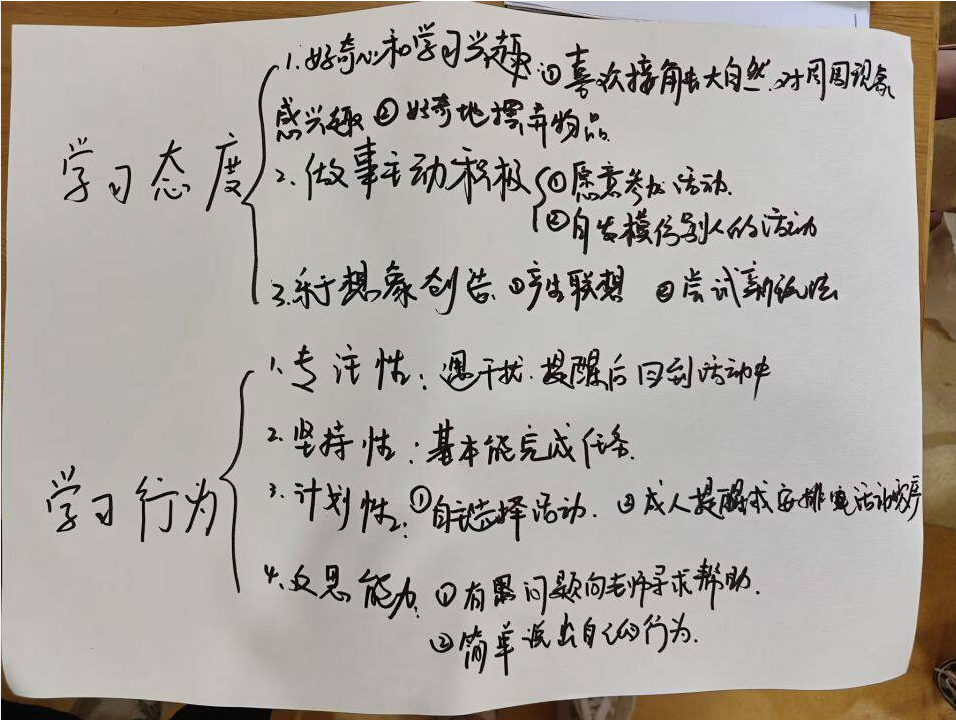 学习态度
1.好奇心和学习兴趣 ①喜欢接触大自然.对周围现象
感兴趣 ②好奇地摆弄物品.
2.做事主动积极 ①愿意参加活动.
②自发模仿别人的活动
3.乐于想象创造.①产生联想 ②尝试新玩法
学习行为
1.专注性:遇干扰.提醒后回到活动中
2.坚持性:基本能完成任务.
3.计划性:①自主选择活动. ②成人提醒或安排 活动顺序
4.反思能力:①有 问题向老师寻求帮助.
②简单说出自己的行为.